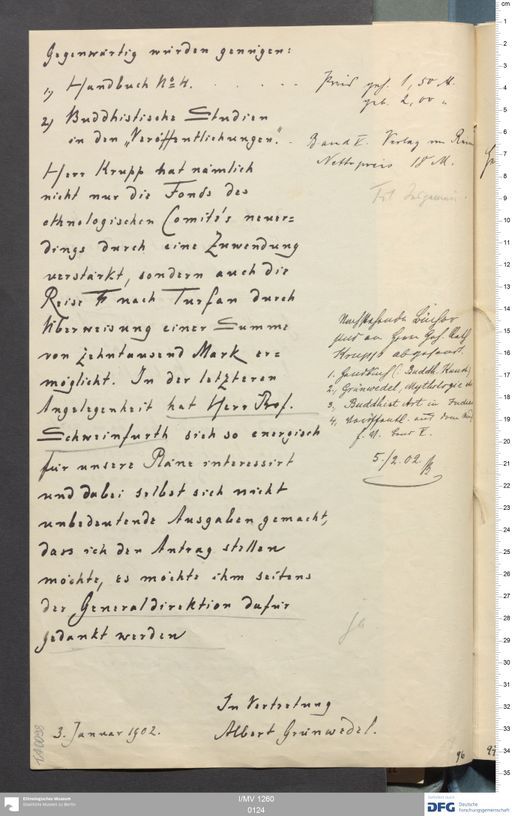 Gegenwärtig würden genügen:
1) Handbuch No 4. . . . . . . Preis geh. 1,50 M.
geb. 2,00 "
2) Buddhistische Studien
in den „Veröffentlichungen“. Band V. Verlag von
Nettopreis 18 M.
Herr Krupp hat nämlich
nicht nur die Fonds des
ethnologischen Comité's neuer=
dings durch eine Zuwendung
verstärkt, sondern auch die
Reise nach Turfan durch
Überweisung einer Summe
von zehntausend Mark er=
möglicht. In der letzteren
Angelegenheit hat Herr Prof.
Schweinfurth sich so energisch
für unsere Pläne interessirt
und dabei selbst sich nicht
unbedeutende Ausgaben gemacht,
dass ich den Antrag stellen
möchte, es möchte ihm seitens
der Generaldirektion dafür
gedankt werden
Nachstehende Bücher
sind an Herrn Geh. Rath
Krupp abgesandt.
1. Handbuch (Buddh. Kunst)
2. Grünwedel, Mythologie
3. Buddhist Art in India
4. Veröffentl. aus dem
f. V. Band V.
5./2.02.
In Vertretung
3. Januar 1902. Albert Grünwedel.
96
Ethnologisches Museum
Staatliche Museen zu Berlin
I/MV 1260
0124
gefördert durch
DFG Deutsche
Forschungsgemeinschaft
cm
1
2
3
4
5
6
7
8
9
10
11
12
13
14
15
16
17
18
19
20
21
22
23
24
25
26
27
28
29
30
31
32
33
34
35